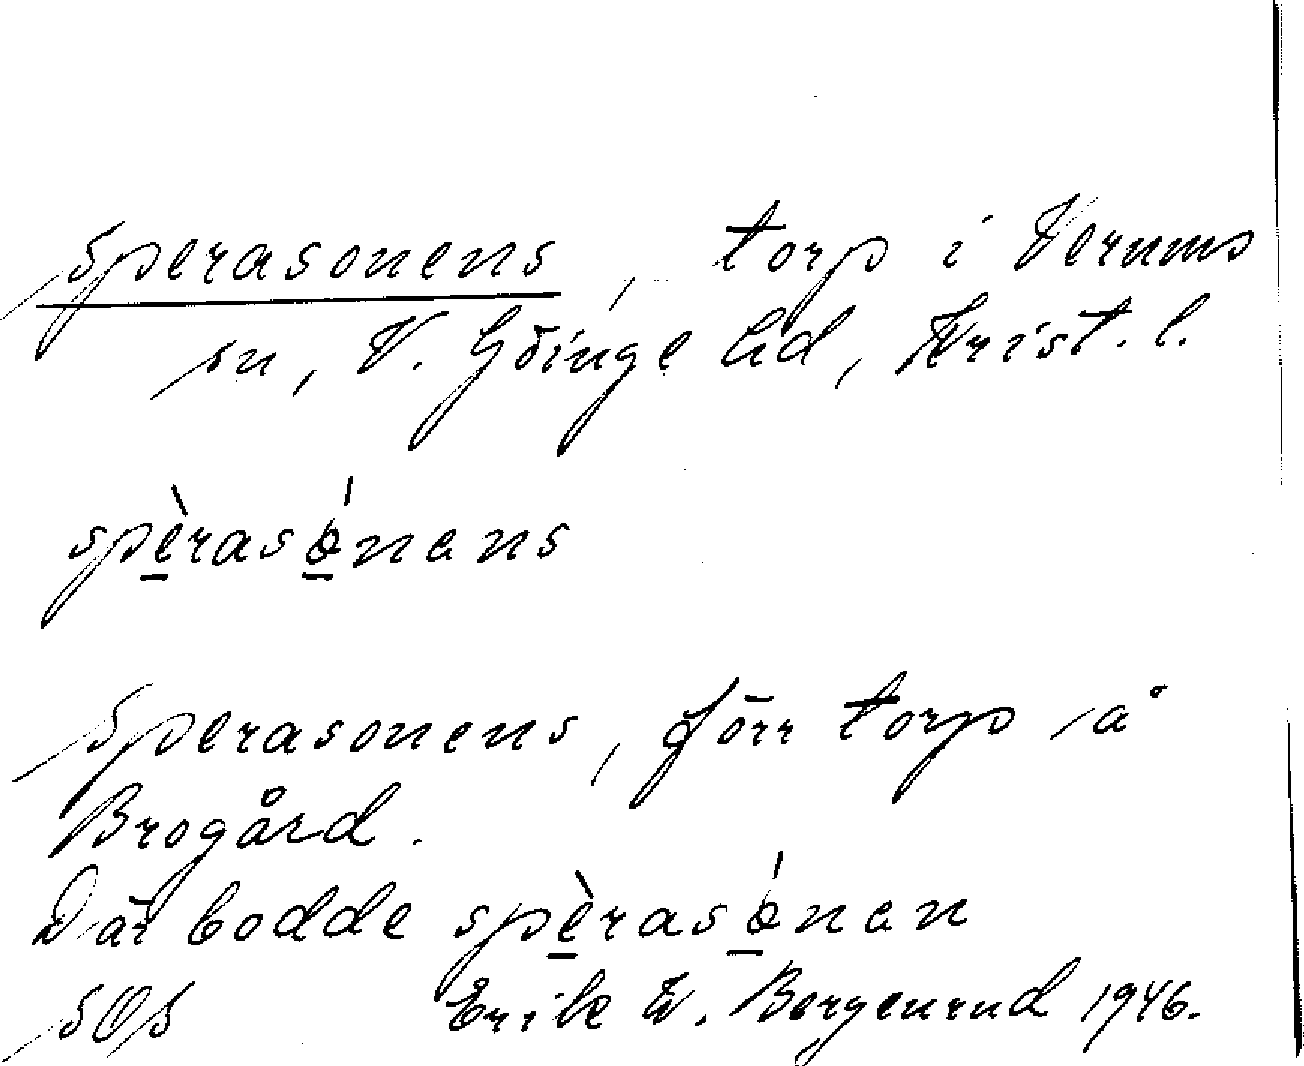 Sperasonens, torp i Verums
sn, V. Göinge hd, Krist. l.
spèrasónans
Sperasonens, förr torp å
Brogård.
Där bodde spèrasónan
SOS Erik W. Bergenrud 1946.